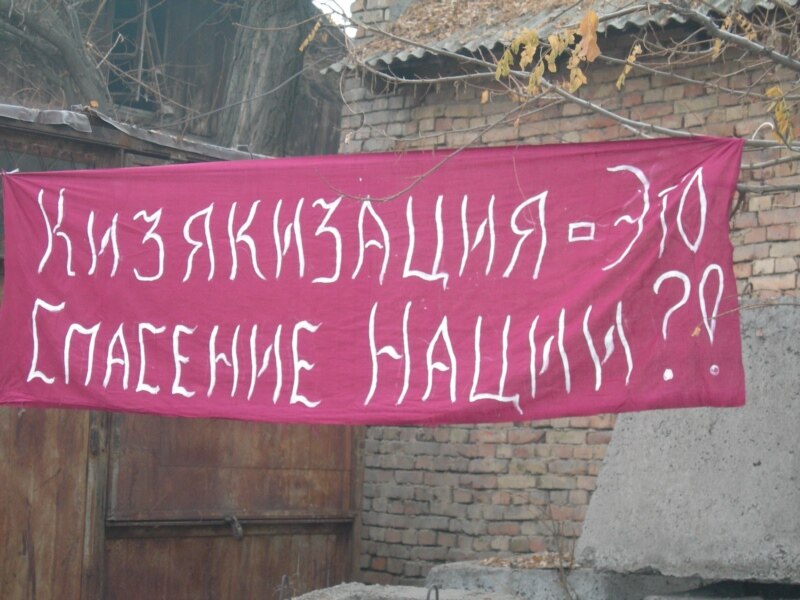 Кизякизация - Это
Спасение Нации?!